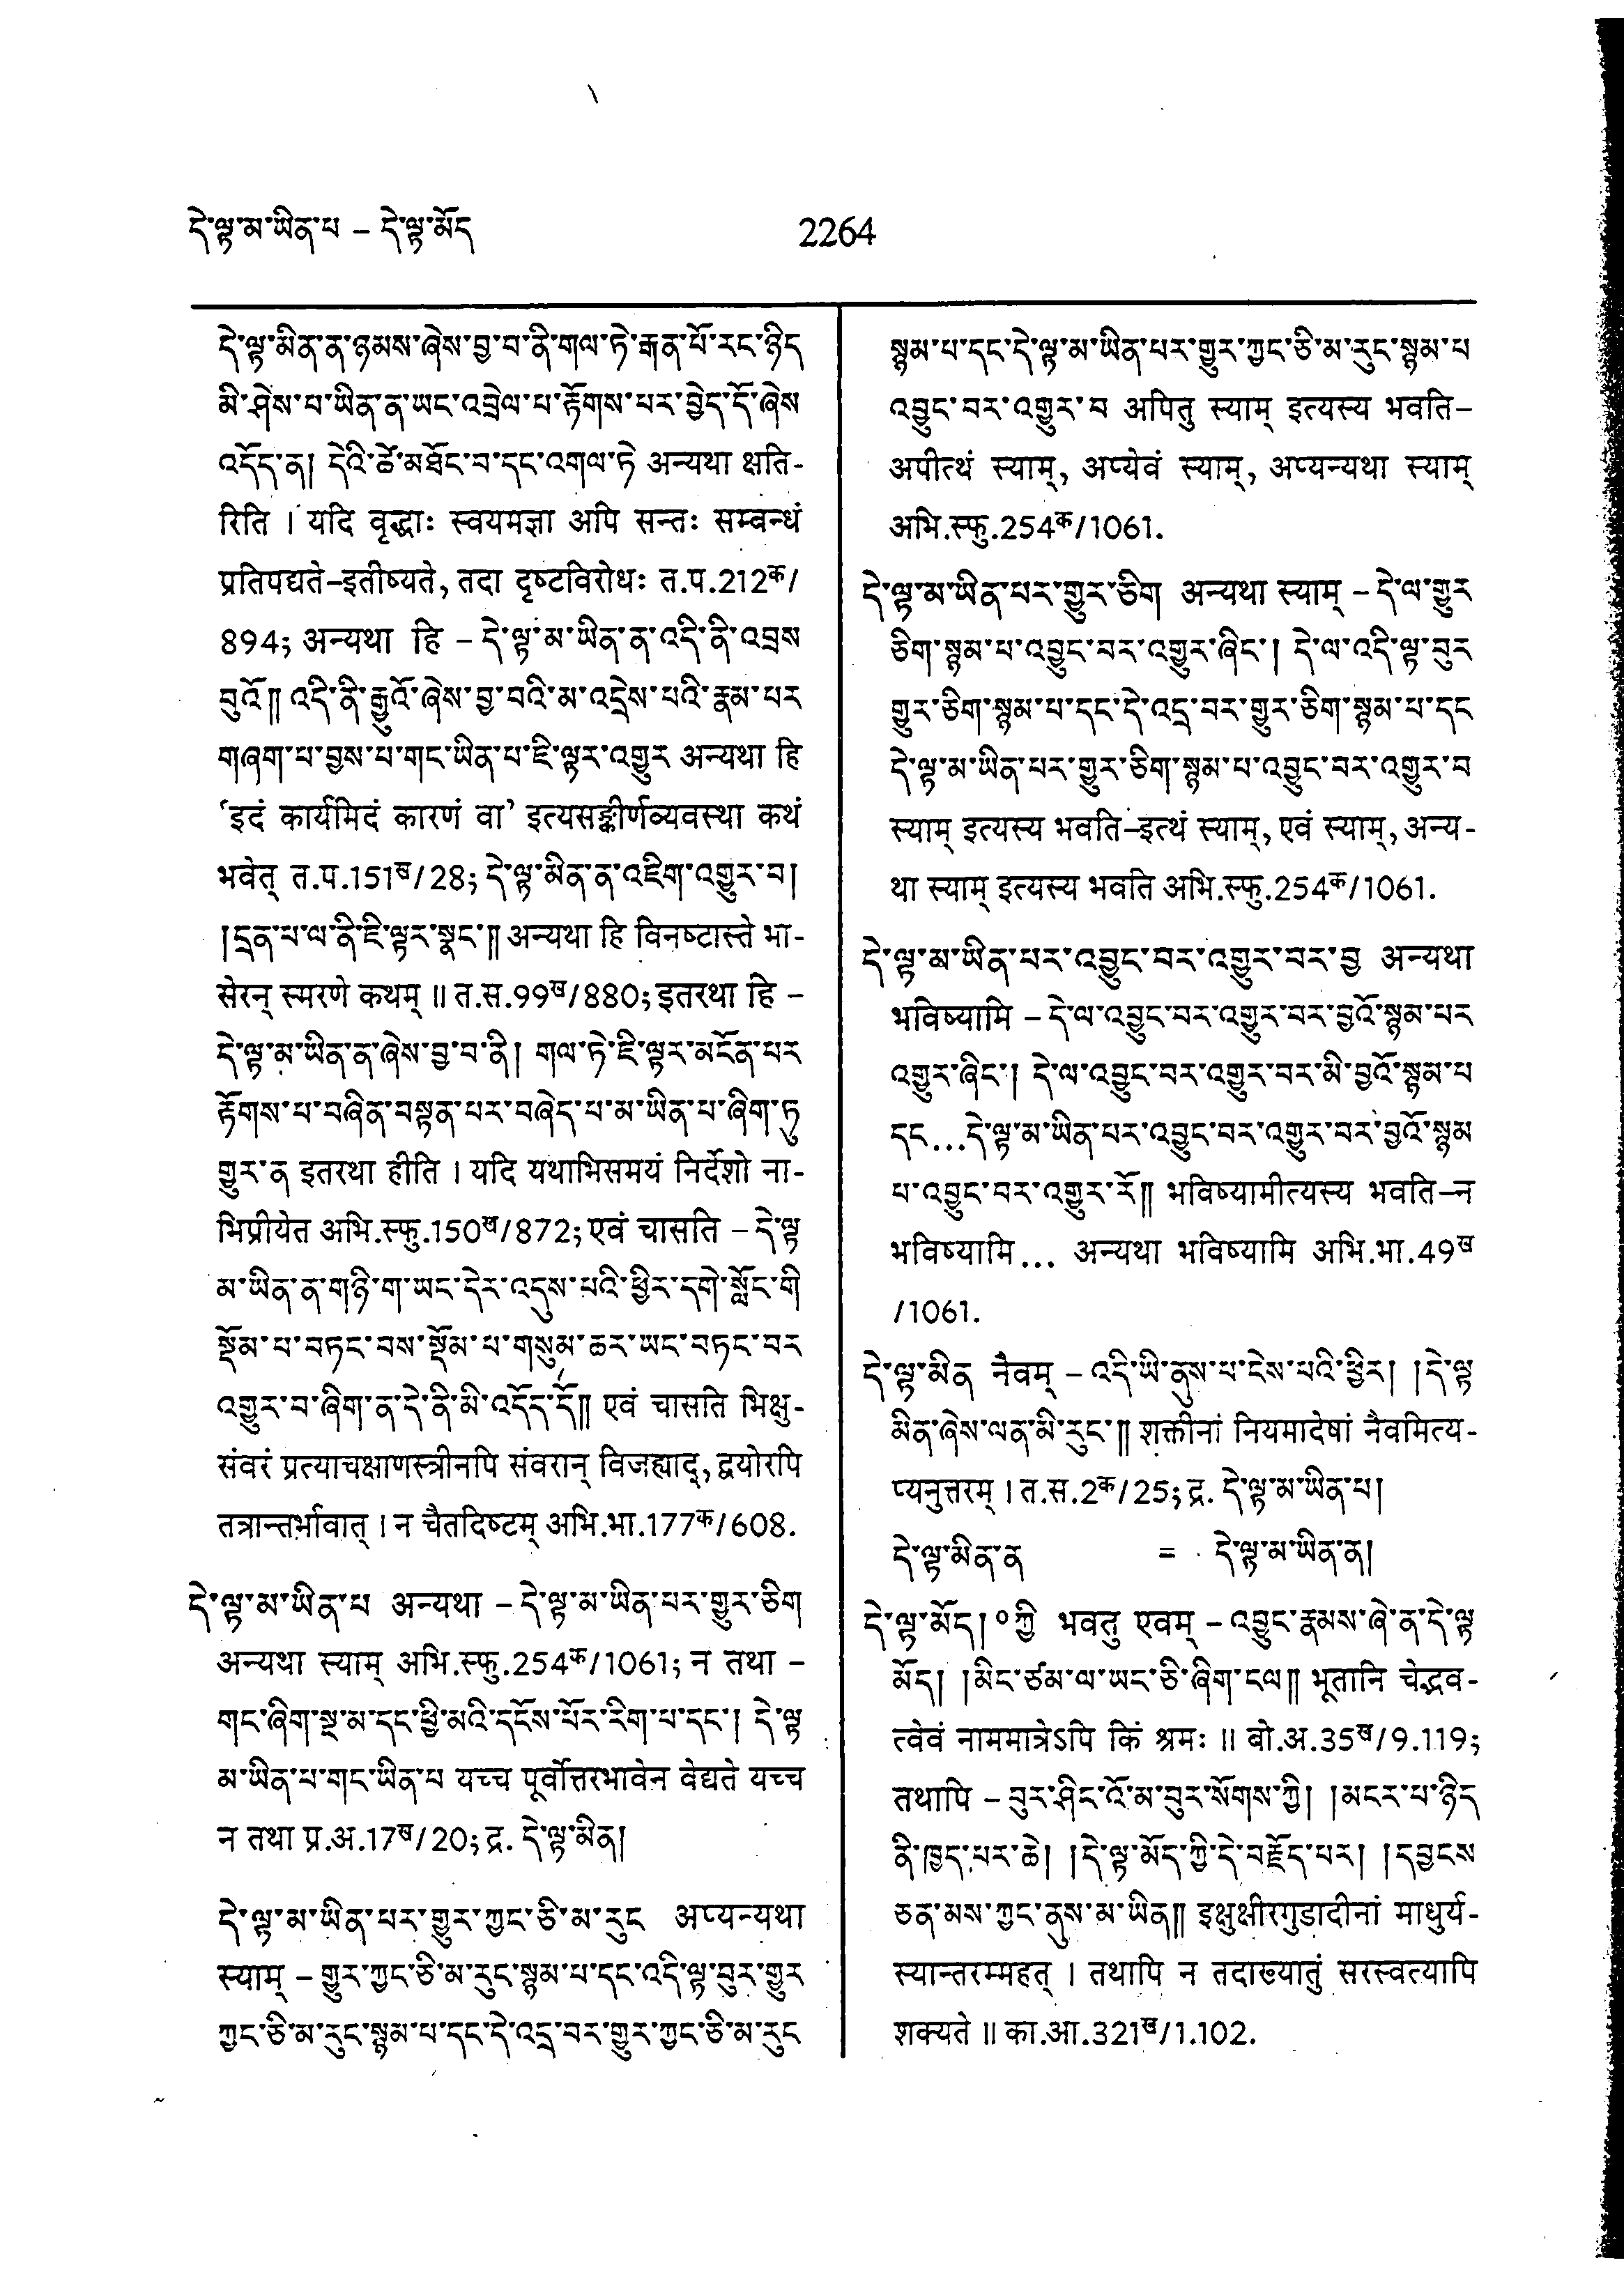 དེ་ལྟ་མ་ཡིན་པ – དེ་ལྟ་མོད
2264
དེ་ལྟ་མིན་ན་ཉམས་ཞེས་བྱ་བ་ནི་གལ་ཏེ་རྒན་པོ་རང་ཉིད
མི་ཤེས་བ་ཡིན་ན་ཡང་འབྲེལ་པ་རྟོགས་པར་བྱེད་དོ་ཞེས
འདོད་ན། དེའི་ཚེ་མཐོང་བ་དང་འགལ་ཏེ अन्यथा क्षति-
रिति । यदि वृद्धाः स्वयमज्ञा अपि सन्तः सम्बन्धं
प्रतिपद्यते–इतीष्यते, तदा दृष्टविरोधः त.प.212क/
894; अन्यथा हि – དེ་ལྟ་མ་ཡིན་ན་འདི་ནི་འབྲས
བུའོ།། འདི་ནི་རྒྱུའོ་ཞེས་བྱ་བའི་མ་འདྲེས་པའི་རྣམ་པར
གཞག་པ་བྱས་པ་གང་ཡིན་པ་ཇི་ལྟར་འགྱུར अन्यथा हि
‘इदं कार्यमिदं कारणं वा’ इत्यसङ्कीर्णव्यवस्था कथं
भवेत् त.प.151ख/28; དེ་ལྟ་མིན་ན་འཇིག་འགྱུར་བ།
།དྲན་པ་ལ་ནི་ཇི་ལྟར་སྣང་།། अन्यथा हि विनष्टास्ते भा-
सेरन् स्मरणे कथम् ॥ त.स.99ख/880; इतरथा हि –
དེ་ལྟ་མ་ཡིན་ན་ཞེས་བྱ་བ་ནི། གལ་ཏེ་ཇི་ལྟར་མངོན་པར
རྟོགས་པ་བཞིན་བསྟན་པར་བཞེད་པ་མ་ཡིན་པ་ཞིག་ཏུ
གྱུར་ན इतरथा हीति । यदि यथाभिसमयं निर्देशो ना-
भिप्रीयेत अभि.स्फु.150ख/872; एवं चासति – དེ་ལྟ
མ་ཡིན་ན་གཉི་ག་ཡང་དེར་འདུས་པའི་ཕྱིར་དགེ་སློང་གི
སྡོམ་པ་བཏང་བས་སྡོམ་པ་གསུམ་ཆར་ཡང་བཏང་བར
འགྱུར་བ་ཞིག་ན་དེ་ནི་མི་འདོད་དོ།། एवं चासति भिक्षु-
संवरं प्रत्याचक्षाणस्त्रीनपि संवरान् विजह्याद्, द्वयोरपि
तत्रान्तर्भावात् । न चैतदिष्टम् अभि.भा.177क/608.
དེ་ལྟ་མ་ཡིན་པ अन्यथा – དེ་ལྟ་མ་ཡིན་པར་གྱུར་ཅིག
अन्यथा स्याम् अभि.स्फु.254क/1061; न तथा –
གང་ཞིག་སྔ་མ་དང་ཕྱི་མའི་དངོས་པོར་རིག་པ་དང་། དེ་ལྟ
མ་ཡིན་པ་གང་ཡིན་པ यच्च पूर्वोत्तरभावेन वेद्यते यच्च
न तथा प्र.अ.17ख/20; द्र. དེ་ལྟ་མིན།
དེ་ལྟ་མ་ཡིན་པར་གྱུར་ཀྱང་ཅི་མ་རུང अप्यन्यथा
स्याम् – གྱུར་ཀྱང་ཅི་མ་རུང་སྙམ་པ་དང་འདི་ལྟ་བུར་གྱུར
ཀྱང་ཅི་མ་རུང་སྙམ་པ་དང་དེ་འདྲ་བར་གྱུར་ཀྱང་ཅི་མ་རུང
སྙམ་པ་དང་དེ་ལྟ་མ་ཡིན་པར་གྱུར་ཀྱང་ཅི་མ་རུང་སྙམ་པ
འབྱུང་བར་འགྱུར་བ अपितु स्याम् इत्यस्य भवति–
अपीत्थं स्याम्, अप्येवं स्याम्, अप्यन्यथा स्याम्
अभि.स्फु.254क/1061.
དེ་ལྟ་མ་ཡིན་པར་གྱུར་ཅིག अन्यथा स्याम् – དེ་ལ་གྱུར
ཅིག་སྙམ་པ་འབྱུང་བར་འགྱུར་ཞིང་། དེ་ལ་འདི་ལྟ་བུར
གྱུར་ཅིག་སྙམ་པ་དང་དེ་འདྲ་བར་གྱུར་ཅིག་སྙམ་པ་དང
དེ་ལྟ་མ་ཡིན་པར་གྱུར་ཅིག་སྙམ་པ་འབྱུང་བར་འགྱུར་བ
स्याम् इत्यस्य भवति–इत्थं स्याम्, एवं स्याम्, अन्य-
था स्याम् इत्यस्य भवति अभि.स्फु.254क/1061.
དེ་ལྟ་མ་ཡིན་པར་འབྱུང་བར་འགྱུར་བར་བྱ अन्यथा
भविष्यामि – དེ་ལ་འབྱུང་བར་འགྱུར་བར་བྱའོ་སྙམ་པར
འགྱུར་ཞིང་། དེ་ལ་འབྱུང་བར་འགྱུར་བར་མི་བྱའོ་སྙམ་པ
དང...དེ་ལྟ་མ་ཡིན་པར་འབྱུང་བར་འགྱུར་བར་བྱའོ་སྙམ
པ་འབྱུང་བར་འགྱུར་རོ།། भविष्यामीत्यस्य भवति–न
भविष्यामि... अन्यथा भविष्यामि अभि.भा.49ख
/1061.
དེ་ལྟ་མིན नैवम् – འདི་ཡི་ནུས་པ་ངེས་པའི་ཕྱིར། །དེ་ལྟ
མིན་ཞེས་ལན་མི་རུང་།། शक्तीनां नियमादेषां नैवमित्य-
प्यनुत्तरम् । त.स.2क/25; द्र. དེ་ལྟ་མ་ཡིན་པ།
དེ་ལྟ་མིན་ན = དེ་ལྟ་མ་ཡིན་ན།
དེ་ལྟ་མོད། ॰ཀྱི भवतु एवम् – འབྱུང་རྣམས་ཞེ་ན་དེ་ལྟ
མོད། །མིང་ཙམ་ལ་ཡང་ཅི་ཞིག་ངལ།། भूतानि चेद्भव-
त्वेवं नाममात्रेऽपि किं श्रमः ॥ बो.अ.35ख/9.119;
तथापि – བུར་ཤིང་འོ་མ་བུར་སོགས་ཀྱི། །མངར་པ་ཉིད
ནི་ཁྱད་པར་ཆེ། །དེ་ལྟ་མོད་ཀྱི་དེ་བརྗོད་པར། །དབྱངས
ཅན་མས་ཀྱང་ནུས་མ་ཡིན།། इक्षुक्षीरगुडादीनां माधुर्य-
स्यान्तरम्महत् । तथापि न तदाख्यातुं सरस्वत्यापि
शक्यते ॥ का.आ.321ख/1.102.